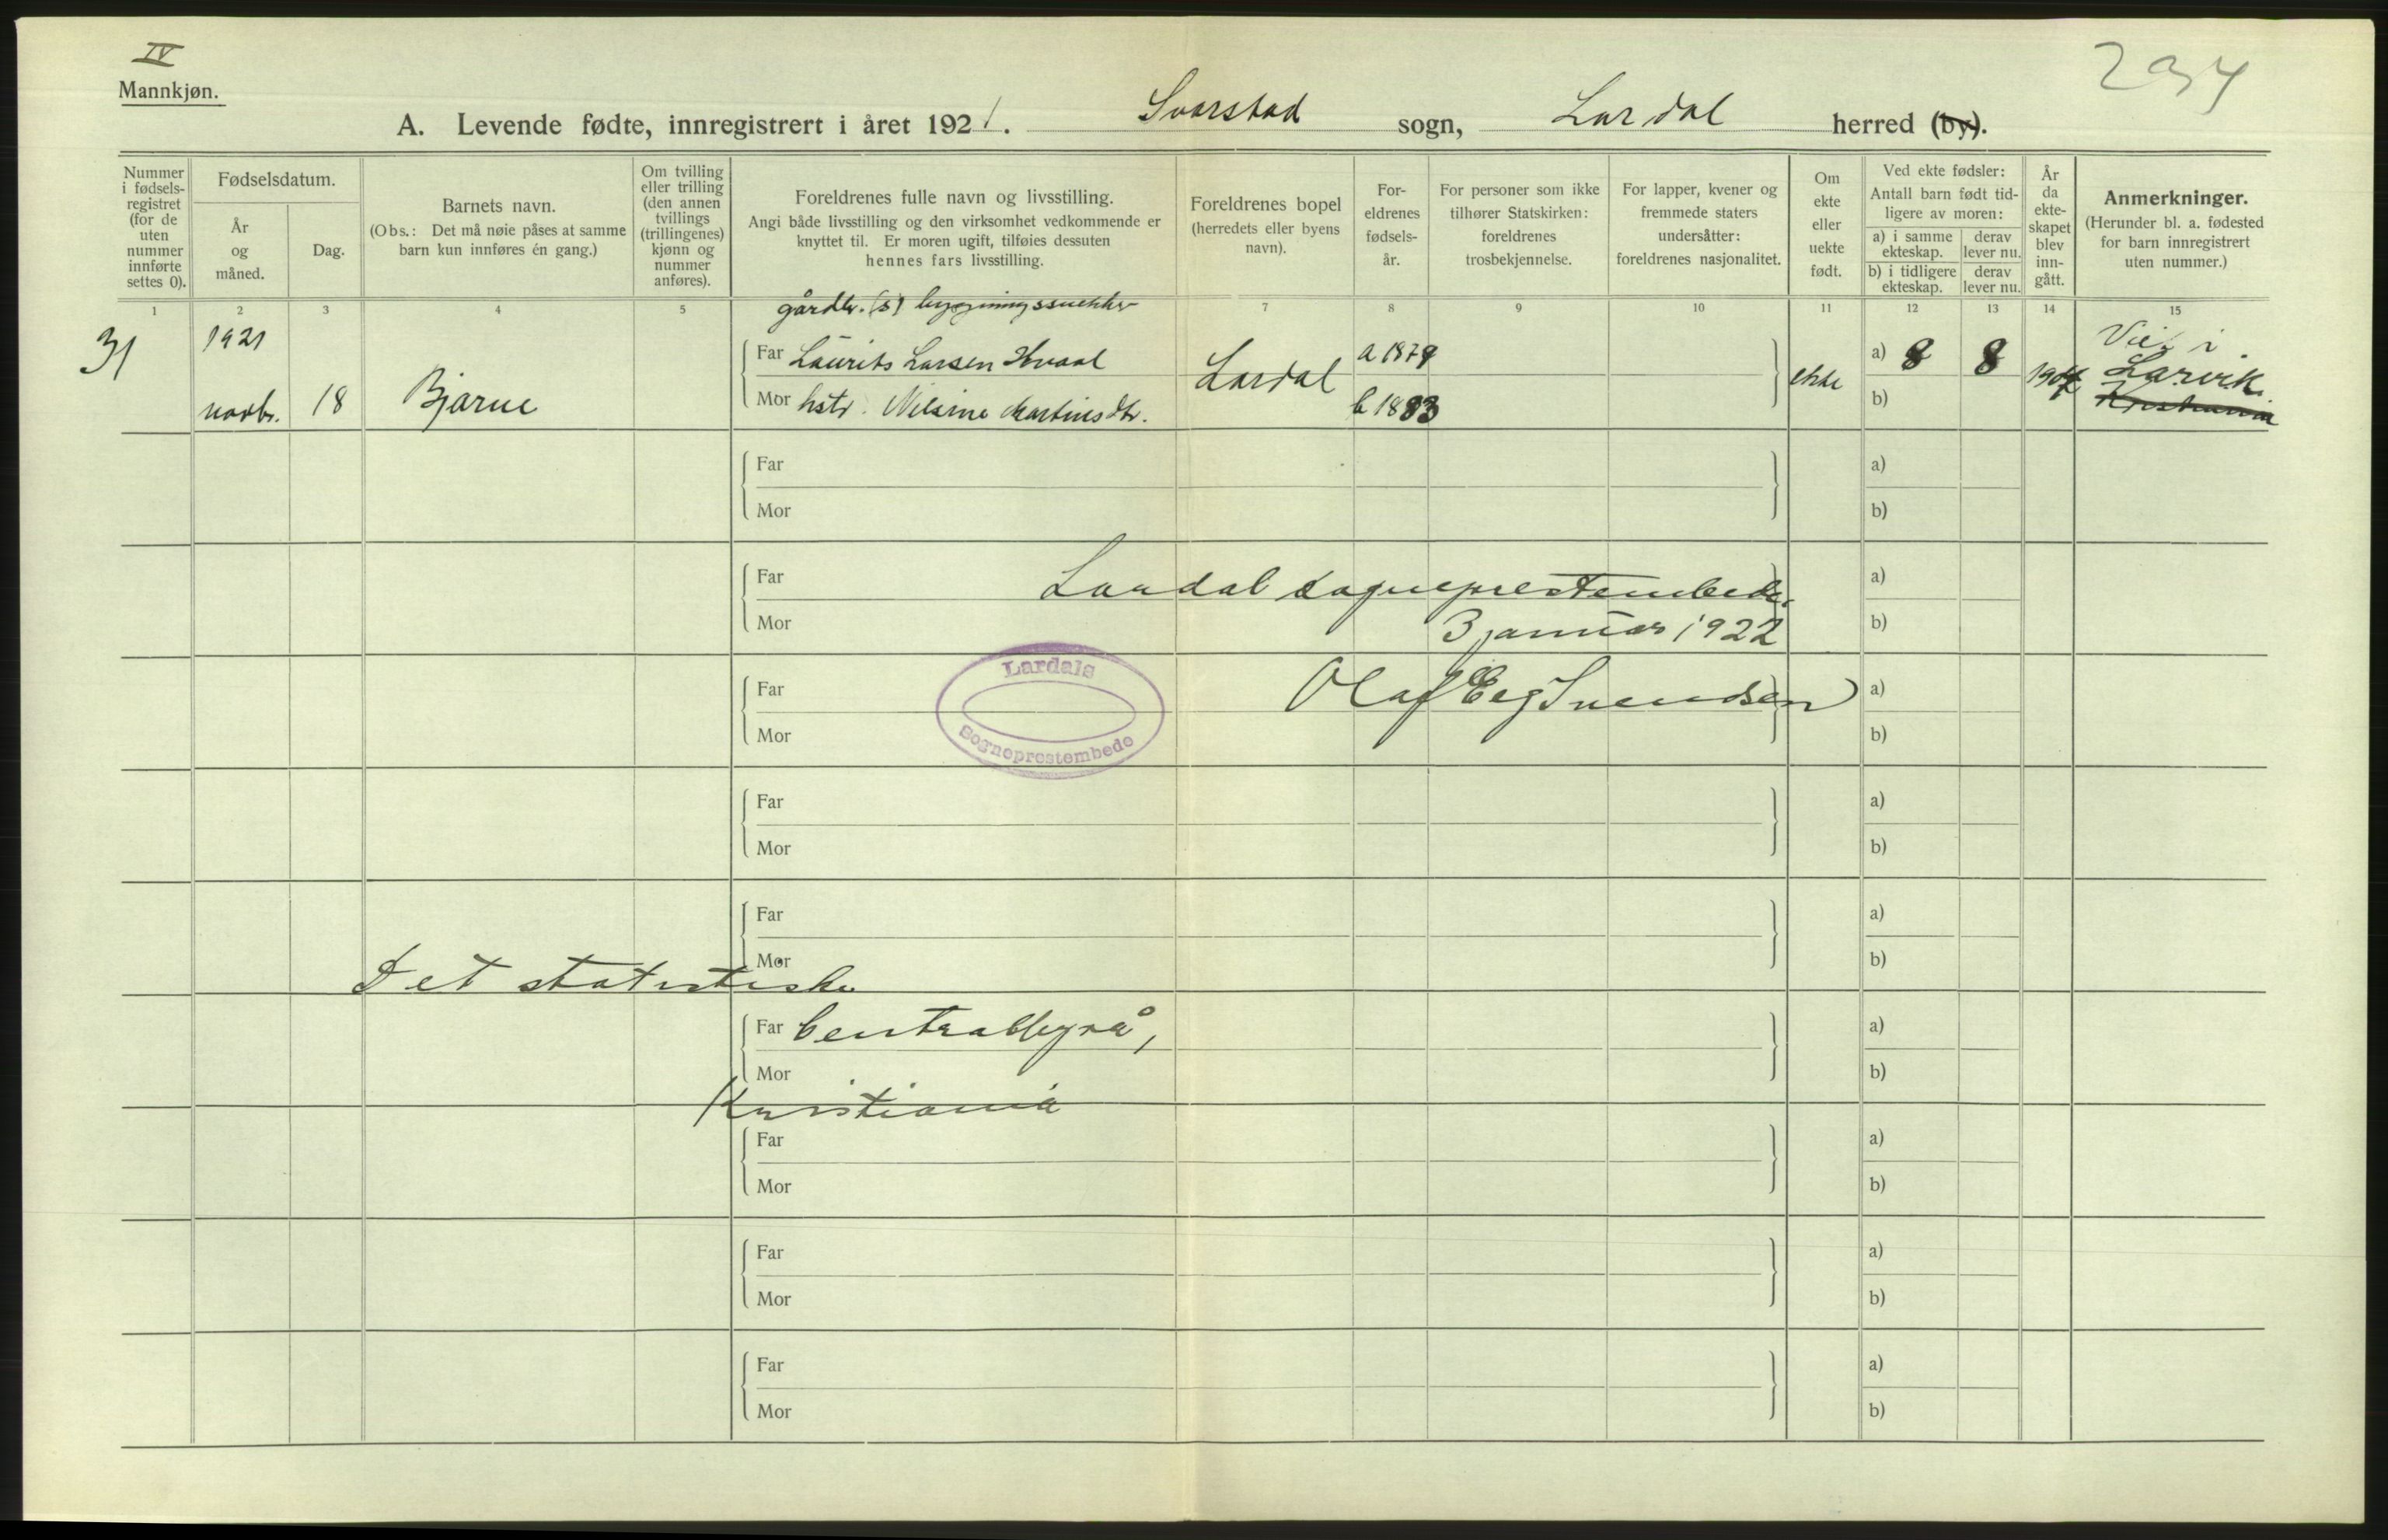 IV
Mannkjøn.
234
A. Levende fødte, innregistrert i året 1921. Svarstad sogn, Lardal herred (by).
Nummer i fødsels- registret (for de uten nummer innførte settes 0).
Fødselsdatum.
År og måned.
Dag.
Barnets navn.
(Obs.: Det må nøie påses at samme barn kun innføres én gang.)
Om tvilling eller trilling (den annen tvillings (trillingenes) kjønn og nummer anføres).
Foreldrenes fulle navn og livsstilling.
Angi både livsstilling og den virksomhet vedkommende er knyttet til. Er moren ugift, tilføies dessuten hennes fars livsstilling.
Foreldrenes bopel (herredets eller byens navn).
For- eldrenes fødsels- år.
For personer som ikke tilhører Statskirken: foreldrenes trosbekjennelse.
For lapper, kvener og fremmede staters undersåtter: foreldrenes nasjonalitet.
Om ekte eller uekte født.
Ved ekte fødsler:
Antall barn født tid- ligere av moren:
a) i samme ekteskap.
derav lever nu.
b) i tidligere ekteskap.
derav lever nu.
År da ekte- skapet blev inn- gått.
Anmerkninger.
(Herunder bl. a. fødested for barn innregistrert uten nummer.)
1 2 3 4 5 7 8 9 10 11 12 13 14 15
gårdbr. (s)
31
1921
novbr.
18
Bjarne
Far Laurits Larsen Kvaal
Mor hstr. Nilsine Martinsdtr.
Lardal
a 1879
b 1883
ekte
a) 8 8
b)
Viet i
Larvik.
Kristiania
Far a)
Mor b)
Far a)
Mor b)
Lardal sogneprestembede.
3 januar 1922
Far a)
Mor b)
Lardals
Sogneprestembede
Olaf Eeg Svendsen
Far a)
Mor b)
Far a)
Mor b)
Det statistiske
Far Centralbyrå, a)
Mor b)
Kristiania
Far a)
Mor b)
Far a)
Mor b)
Far a)
Mor b)